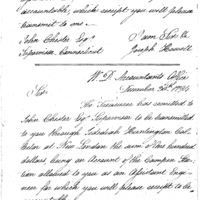 accountable, which receipt you will please
transmit to me.
I am Sir &c
John Chester Esqr
Joseph Howell
Supervisor, Connecticut
W. D. Accountants Office
Sir,
The Treasurer has remitted to
John Chester Esqr Supervisor to be transmitted
to you through Jedediah Huntington Col-
lector at New London the sum of two hundred
dollars, being on Account of the Compen-
allowed to you as an Assistant Engi-
neer for which you will please receipt to be
accountable